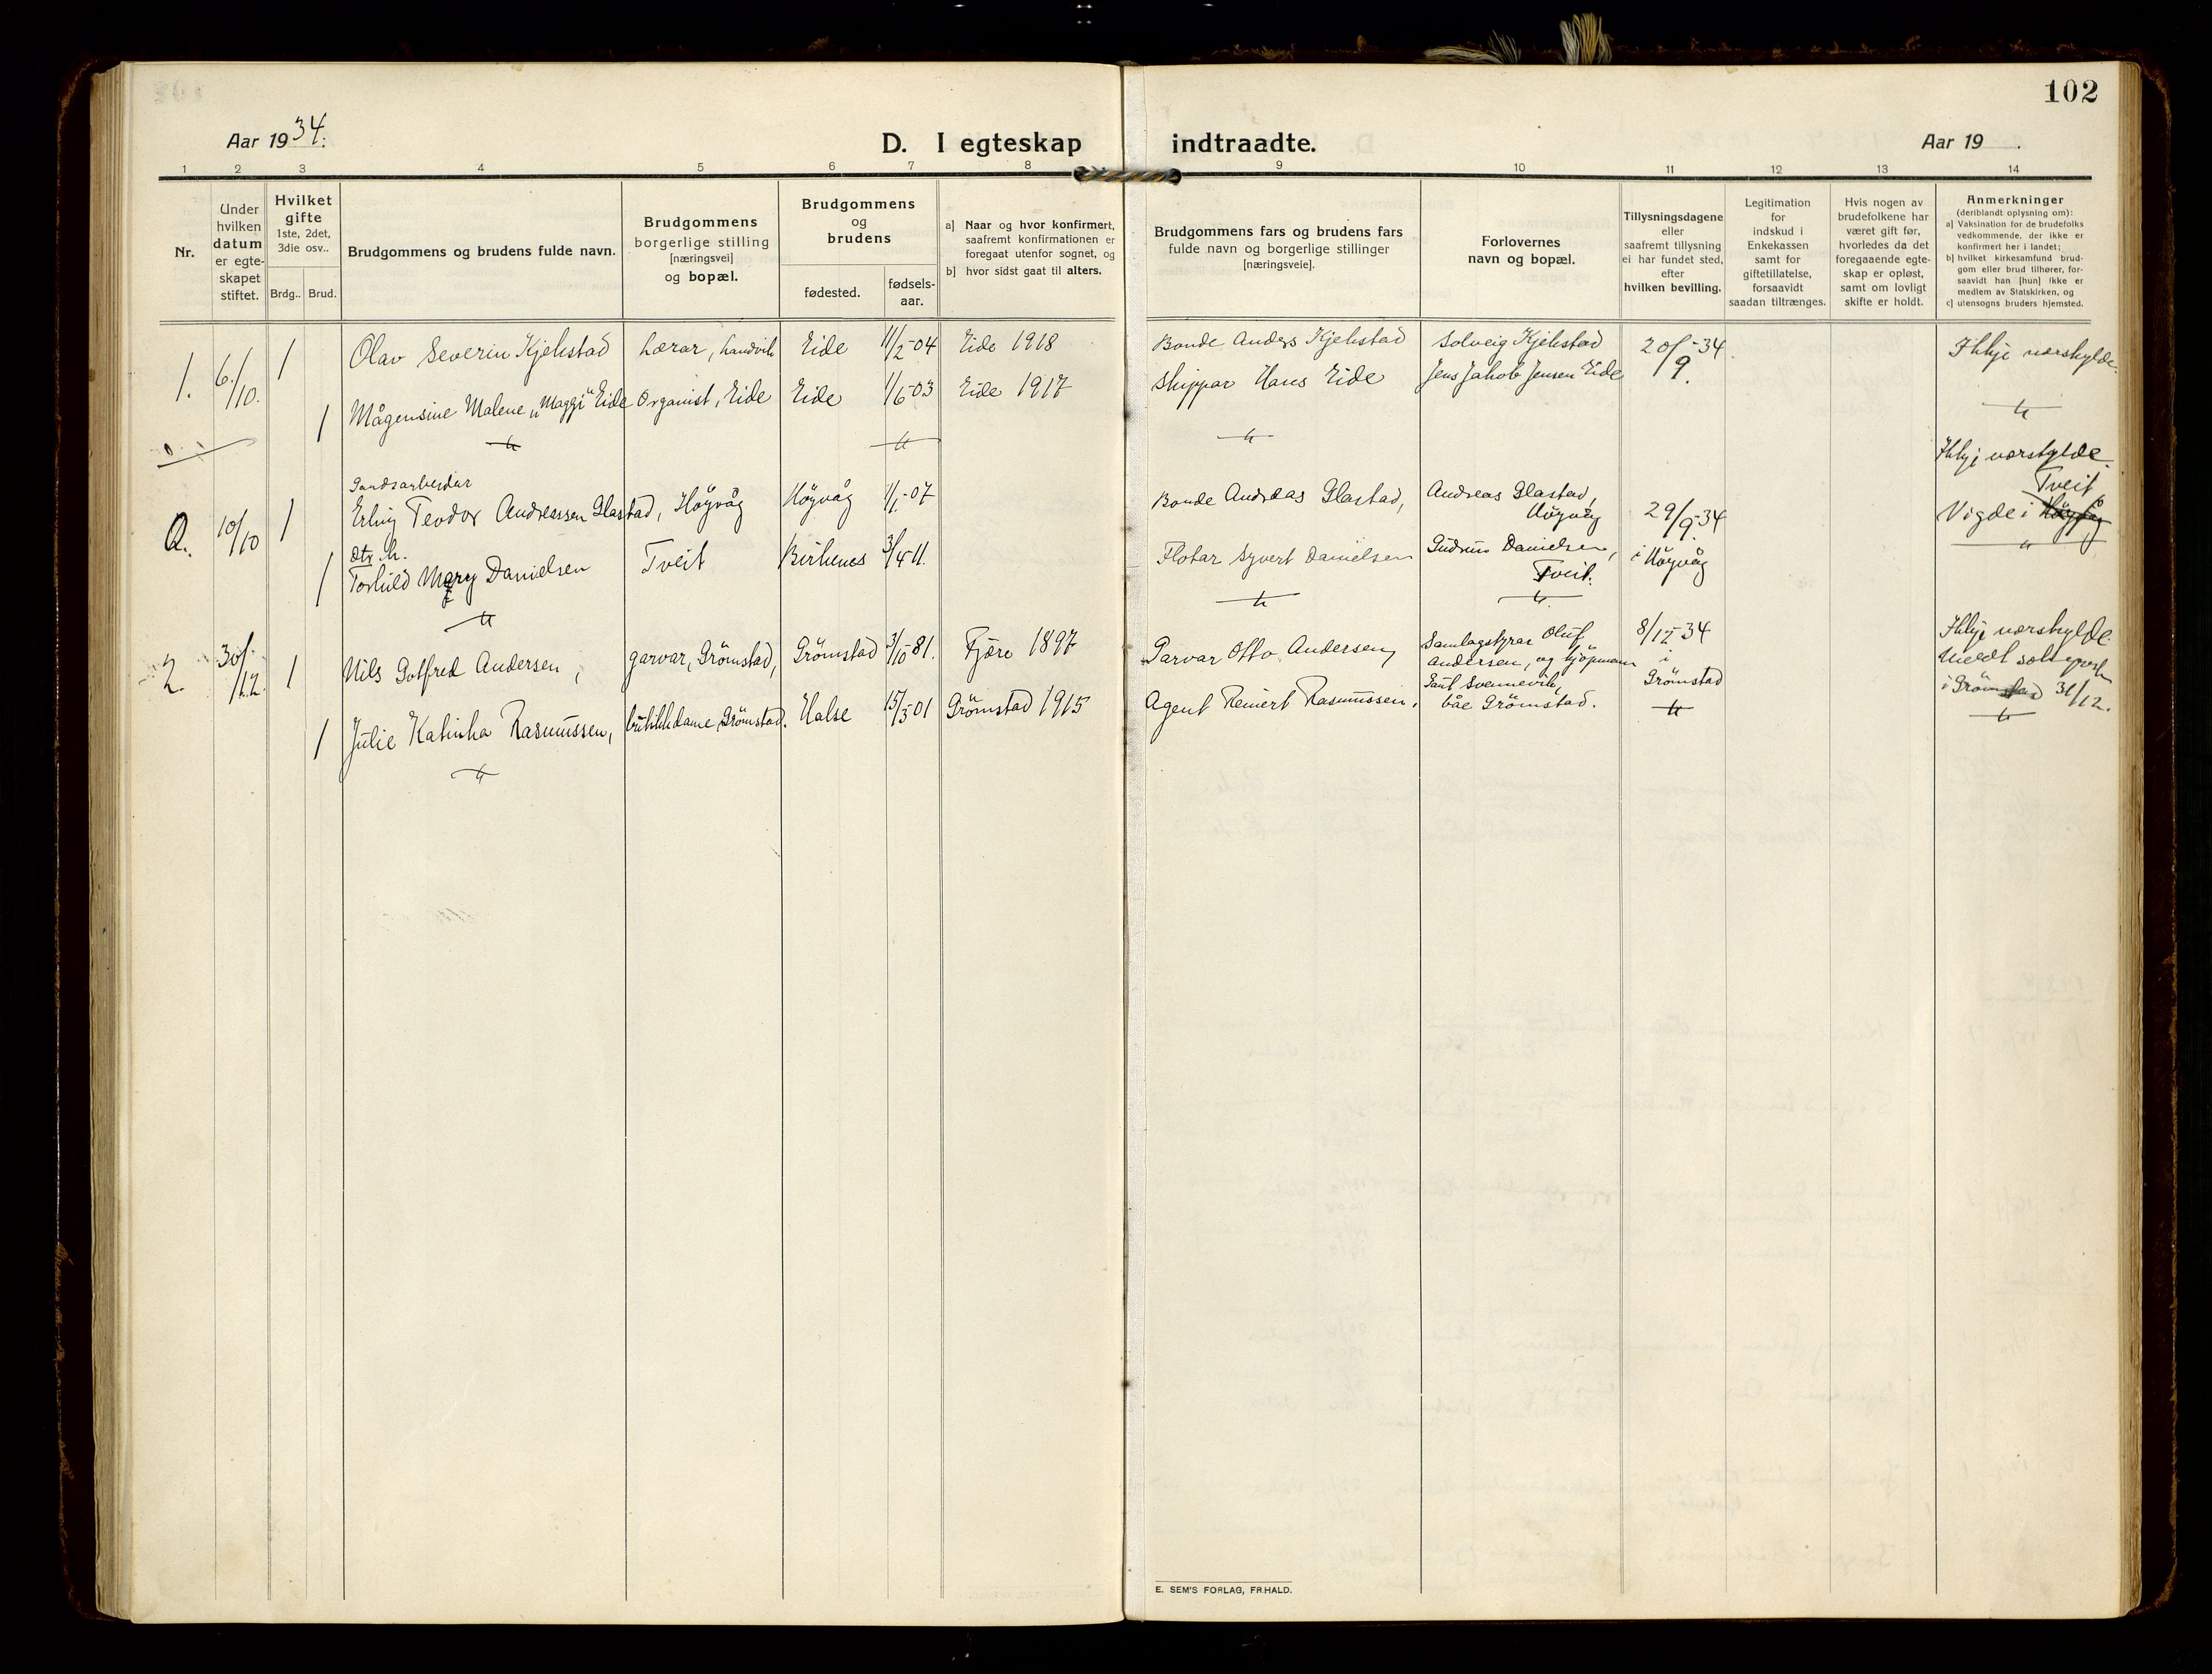 102
Aar 1934.
D. I egteskap indtraadte.
Aar 19 .
1 2 3 4 5 6 7 8 9 10 11 12 13 14
Nr.
Under
hvilken
datum
er egte-
skapet
stiftet.
Hvilket
gifte
1ste, 2det,
3die osv..
Brdg.. Brud.
Brudgommens og brudens fulde navn.
Brudgommens
borgerlige stilling
[næringsvei]
og bopæl.
Brudgommens
og
brudens
fødested.
fødsels-
aar.
a) Naar og hvor konfirmert,
saafremt konfirmationen er
foregaat utenfor sognet, og
b) hvor sidst gaat til alters.
Brudgommens fars og brudens fars
fulde navn og borgerlige stillinger
[næringsveie].
Forlovernes
navn og bopæl.
Tillysningsdagene
eller
saafremt tillysning
ei har fundet sted,
efter
hvilken bevilling.
Legitimation
for
indskud i
Enkekassen
samt for
giftetillatelse,
forsaavidt
saadan tiltrænges.
Hvis nogen av
brudefolkene har
været gift før,
hvorledes da det
foregaaende egte-
skap er opløst,
samt om lovligt
skifte er holdt.
Anmerkninger
(deriblandt oplysning om):
a) Vaksination for de brudefolks
vedkommende, der ikke er
konfirmert her i landet;
b) hvilket kirkesamfund brud-
gom eller brud tilhører, for-
saavidt han [hun] ikke er
medlem av Statskirken, og
c) utensogns bruders hjemsted.
1. 6/10. 1 Olav Severin Kjekstad Lærar, Landvik Eide 11/2-04 Eide 1918 Bonde Anders Kjekstad Solveig Kjekstad 20/9-34. Ikkje værskylde.
1 Mågensine Malene „Maggi" Eide Organist, Eide Eide 1/6-03 Eide 1917 Skippar Hans Eide Jens Jakob Jensen Eide
Ikkje værskylde.
Landsarbeidar
Tveit
a. 10/10 1 Erling Teodor Andreassen Glastad, Höyvåg Höyvåg 1/1-07 Bonde Andreas Glastad, Andreas Glastad, Höyvåg 29/9-34 Vigde i Höyvåg
dtr. h.
1 Torhild Mary Danielsen Tveit Birkenes 3/4-11. Flotar Syvert Danielsen Gudrun Danielsen, Tveit. i Höyvåg
2. 30/12. 1 Nils Gotfred Andersen, garvar, Grömstad, Grömstad 3/10-81. Fjære 1897 Garvar Otto Andersen, Samlagstyrar Oluf 8/12-34 Ikkje værskylde.
Andersen, og kjöpmann i Meldt
Gaut Svennevik, Grömstad i Grömstad 31/12.
1 Julie Katinka Rasmussen, butikkdame, Grömstad. Halse 15/3-01 Grömstad 1915 Agent Reinert Rasmussen, båe Grömstad.
E. SEM'S FORLAG, FR.HALD.